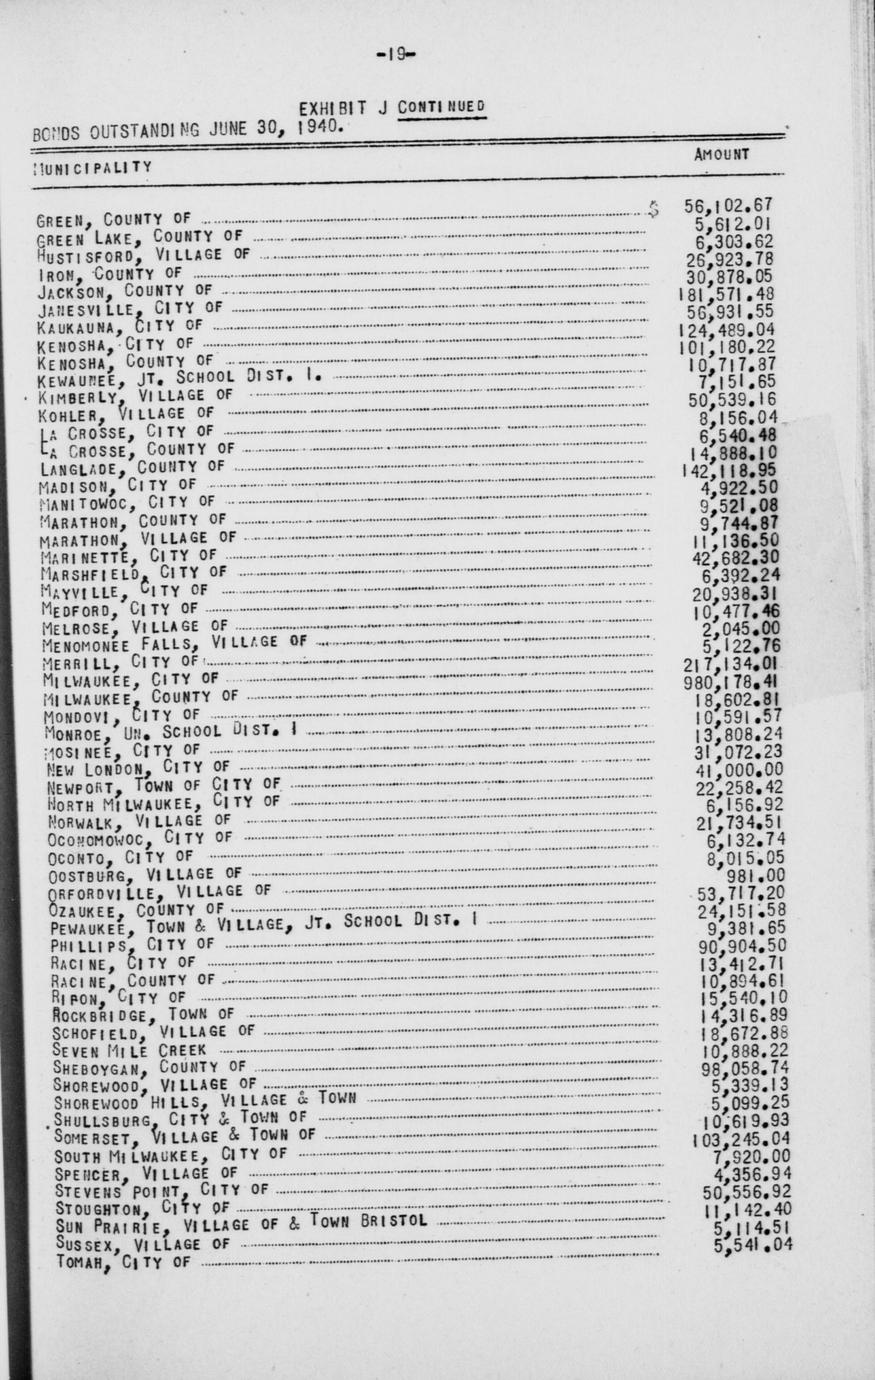 -19-
EXHIBIT J CONTINUED
BONDS OUTSTANDING JUNE 30, 1940.
MUNICIPALITY AMOUNT
GREEN, COUNTY OF $ 56,102.67
GREEN LAKE, COUNTY OF 5,612.01
HUSTISFORD, VILLAGE OF 6,303.62
IRON, COUNTY OF 26,923.78
JACKSON, COUNTY OF 30,878.05
JANESVILLE, CITY OF 181,571.48
KAUKAUNA, CITY OF 56,931.55
KENOSHA, CITY OF 124,489.04
KENOSHA, COUNTY OF 101,180.22
KEWAUNEE, JT. SCHOOL DIST. 1. 10,717.87
KIMBERLY, VILLAGE OF 7,151.65
KOHLER, VILLAGE OF 50,539.16
LA CROSSE, CITY OF 8,156.04
LA CROSSE, COUNTY OF 6,540.48
LANGLADE, COUNTY OF 14,888.10
MADISON, CITY OF 142,118.95
MANITOWOC, CITY OF 4,922.50
MARATHON, COUNTY OF 9,521.08
MARATHON, VILLAGE OF 9,744.87
MARINETTE, CITY OF 11,136.50
MARSHFIELD, CITY OF 42,682.30
MAYVILLE, CITY OF 6,392.24
MEDFORD, CITY OF 20,938.31
MELROSE, VILLAGE OF 10,477.46
MENOMONEE FALLS, VILLAGE OF 2,045.00
MERRILL, CITY OF 5,122.76
MILWAUKEE, CITY OF 217,134.01
MILWAUKEE, COUNTY OF 980,178.41
MONDOVI, CITY OF 18,602.81
MONROE, UN. SCHOOL DIST. 1 10,591.57
MOSINEE, CITY OF 13,808.24
NEW LONDON, CITY OF 31,072.23
NEWPORT, TOWN OF CITY OF 41,000.00
NORTH MILWAUKEE, CITY OF 22,258.42
NORWALK, VILLAGE OF 6,156.92
OCONOMOWOC, CITY OF 21,734.51
OCONTO, CITY OF 6,132.74
OOSTBURG, VILLAGE OF 8,015.05
ORFORDVILLE, VILLAGE OF 981.00
OZAUKEE, COUNTY OF 53,717.20
PEWAUKEE, TOWN & VILLAGE, JT. SCHOOL DIST. 1 24,151.58
PHILLIPS, CITY OF 9,381.65
RACINE, CITY OF 90,904.50
RACINE, COUNTY OF 13,412.71
RIPON, CITY OF 10,894.61
ROCKBRIDGE, TOWN OF 15,540.10
SCHOFIELD, VILLAGE OF 14,316.89
SEVEN MILE CREEK 18,672.88
SHEBOYGAN, COUNTY OF 10,888.22
SHOREWOOD, VILLAGE OF 98,058.74
SHOREWOOD HILLS, VILLAGE & TOWN 5,339.13
SHULLSBURG, CITY & TOWN OF 5,099.25
SOMERSET, VILLAGE & TOWN OF 10,619.93
SOUTH MILWAUKEE, CITY OF 103,245.04
SPENCER, VILLAGE OF 7,920.00
STEVENS POINT, CITY OF 4,356.94
STOUGHTON, CITY OF 50,556.92
SUN PRAIRIE, VILLAGE OF & TOWN BRISTOL 11,142.40
SUSSEX, VILLAGE OF 5,114.51
TOMAH, CITY OF 5,541.04